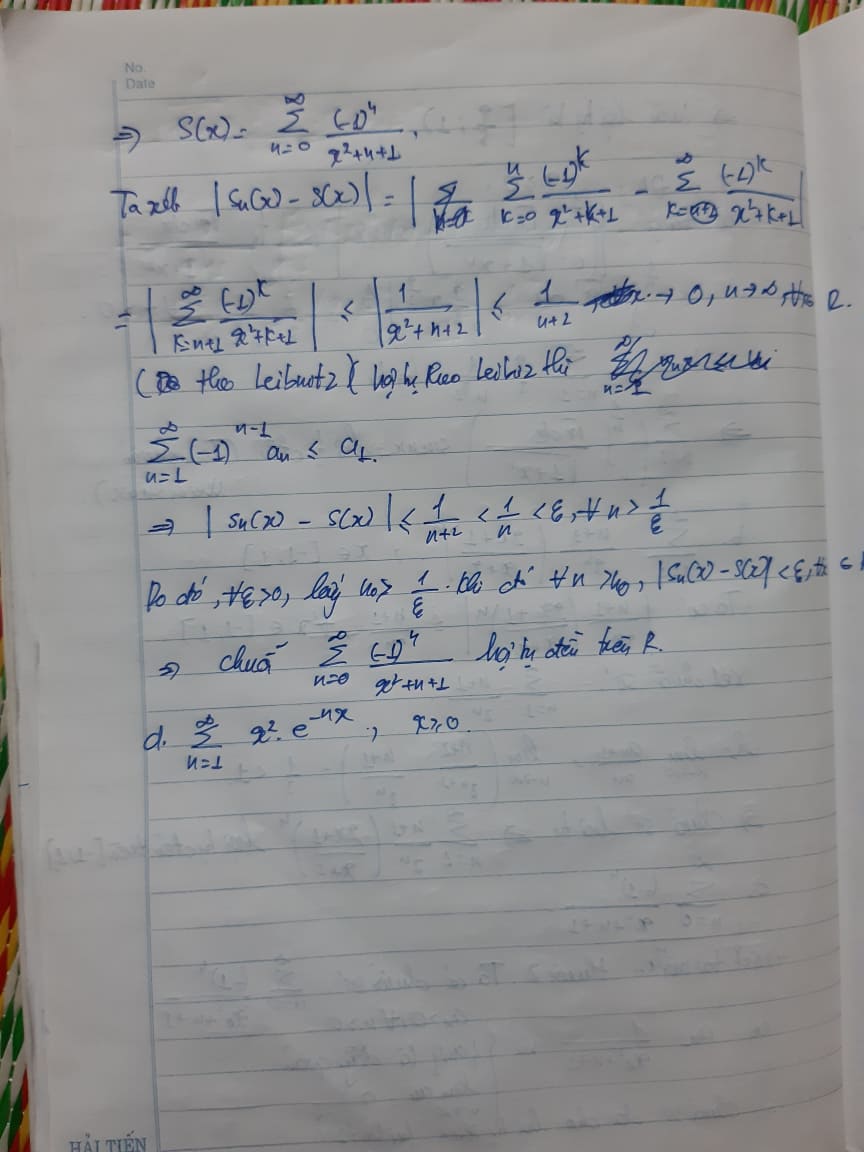 No.
Date
⇒ S(x) = ∑_{n=0}^{∞} (-1)^n / (x²+n+1).
Ta xét |Sn(x) - S(x)| = | ∑_{k=0}^{n} (-1)^k / (x²+k+1) - ∑_{k=}^{∞} (-1)^k / (x²+k+1) |
= | ∑_{k=n+1}^{∞} (-1)^k / (x²+k+1) | ≤ | 1 / (x²+n+2) | ≤ 1 / (n+2) → 0, n→∞, ∀x∈ R.
( theo Leibnitz) hội tụ theo Leibiz thì
∑_{n=1}^{∞} (-1)^{n-1} an ≤ a1.
⇒ | Sn(x) - S(x) | ≤ 1/(n+2) < 1/n < ε, ∀ n > 1/ε
Do đó, ∀ε>0, lấy n0 > 1/ε. Khi đó ∀n > n0, |Sn(x) - S(x)| < ε, ∀x ∈ R
⇒ chuỗi ∑_{n=0}^{∞} (-1)^n / (x²+n+1) hội tụ đều trên R.
d. ∑_{n=1}^{∞} x². e^{-nx}, x≥0.
HẢI TIẾN